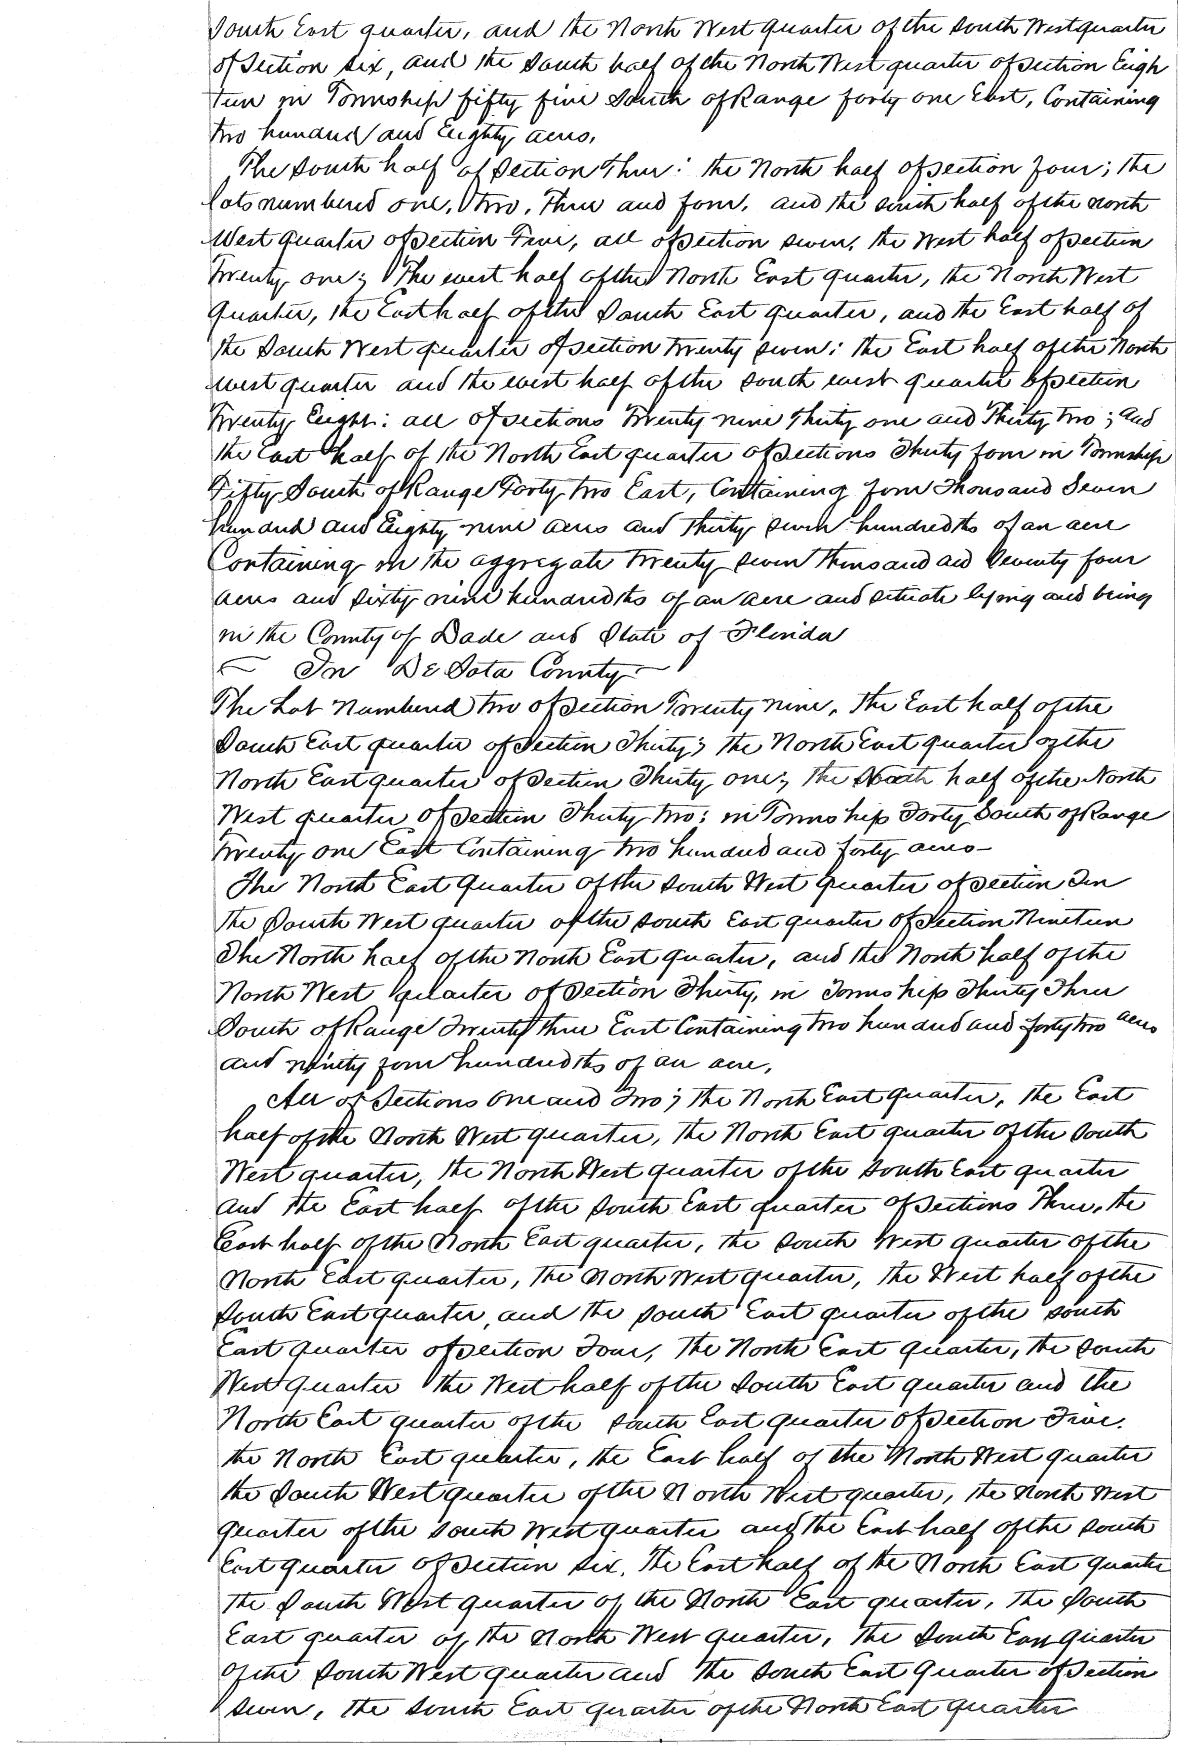 South East quarter, and the North West quarter of the South West quarter
of Section six, and the South half of the North West quarter of Section Eigh
teen in Township fifty five South of Range forty one East, Containing
two hundred and Eighty acres.
The South half of Section Three: the North half of Section four; the
lots numbered one, two, Three and four, and the south half of the north
West quarter of Section Five, all of Section seven, the West half of Section
Twenty one; The west half of the North East quarter, the North West
quarter, the East half of the South East quarter, and the East half of
the South West quarter of section twenty seven: the East half of the North
west quarter and the west half of the south west quarter of section
Twenty Eight: all of sections Twenty nine Thirty one and Thirty two; and
the East half of the North East quarter of Sections Thirty four in Township
Fifty South of Range Forty two East, Containing four Thousand Seven
hundred and Eighty nine acres and thirty seven hundredths of an acre
Containing in the aggregate twenty seven thousand and seventy four
acres and sixty nine hundredths of an acre and situate lying and being
in the County of Dade and State of Florida
In De Sota County
The Lot Numbered two of Section Twenty nine, the East half of the
South East quarter of Section Thirty; the North East quarter of the
North East quarter of Section Thirty one; the South half of the North
West quarter of Section Thirty two: in Township Forty South of Range
Twenty one East Containing two hundred and forty acres
The North East Quarter of the South West Quarter of Section Ten
the South West quarter of the South East quarter of Section Nineteen
The North half of the North East quarter, and the North half of the
North West quarter of Section Thirty, in Township Thirty Three
South of Range Twenty three East Containing two hundred and forty two acres
and ninety four hundredths of an acre.
All of Sections One and Two; the North East Quarter, the East
half of the North West quarter, the North East quarter of the South
West quarter, the North West quarter of the South East quarter
and the East half of the South East quarter of Sections Three, the
East half of the North East quarter, the South West quarter of the
North East quarter, the North West quarter, the West half of the
South East quarter, and the South East quarter of the South
East quarter of Section Four, the North East quarter, the South
West Quarter the West half of the South East quarter and the
North East quarter of the South East quarter of Section Five.
the North East quarter, the East half of the North West quarter
the South West quarter of the North West quarter, the North West
quarter of the South West quarter and the East half of the South
East quarter of Section Six, the East half of the North East quarter
the South West quarter of the North East quarter, the South
East quarter of the North West quarter, the South East Quarter
of the South West quarter and the South East Quarter of Section
seven, the South East quarter of the North East quarter